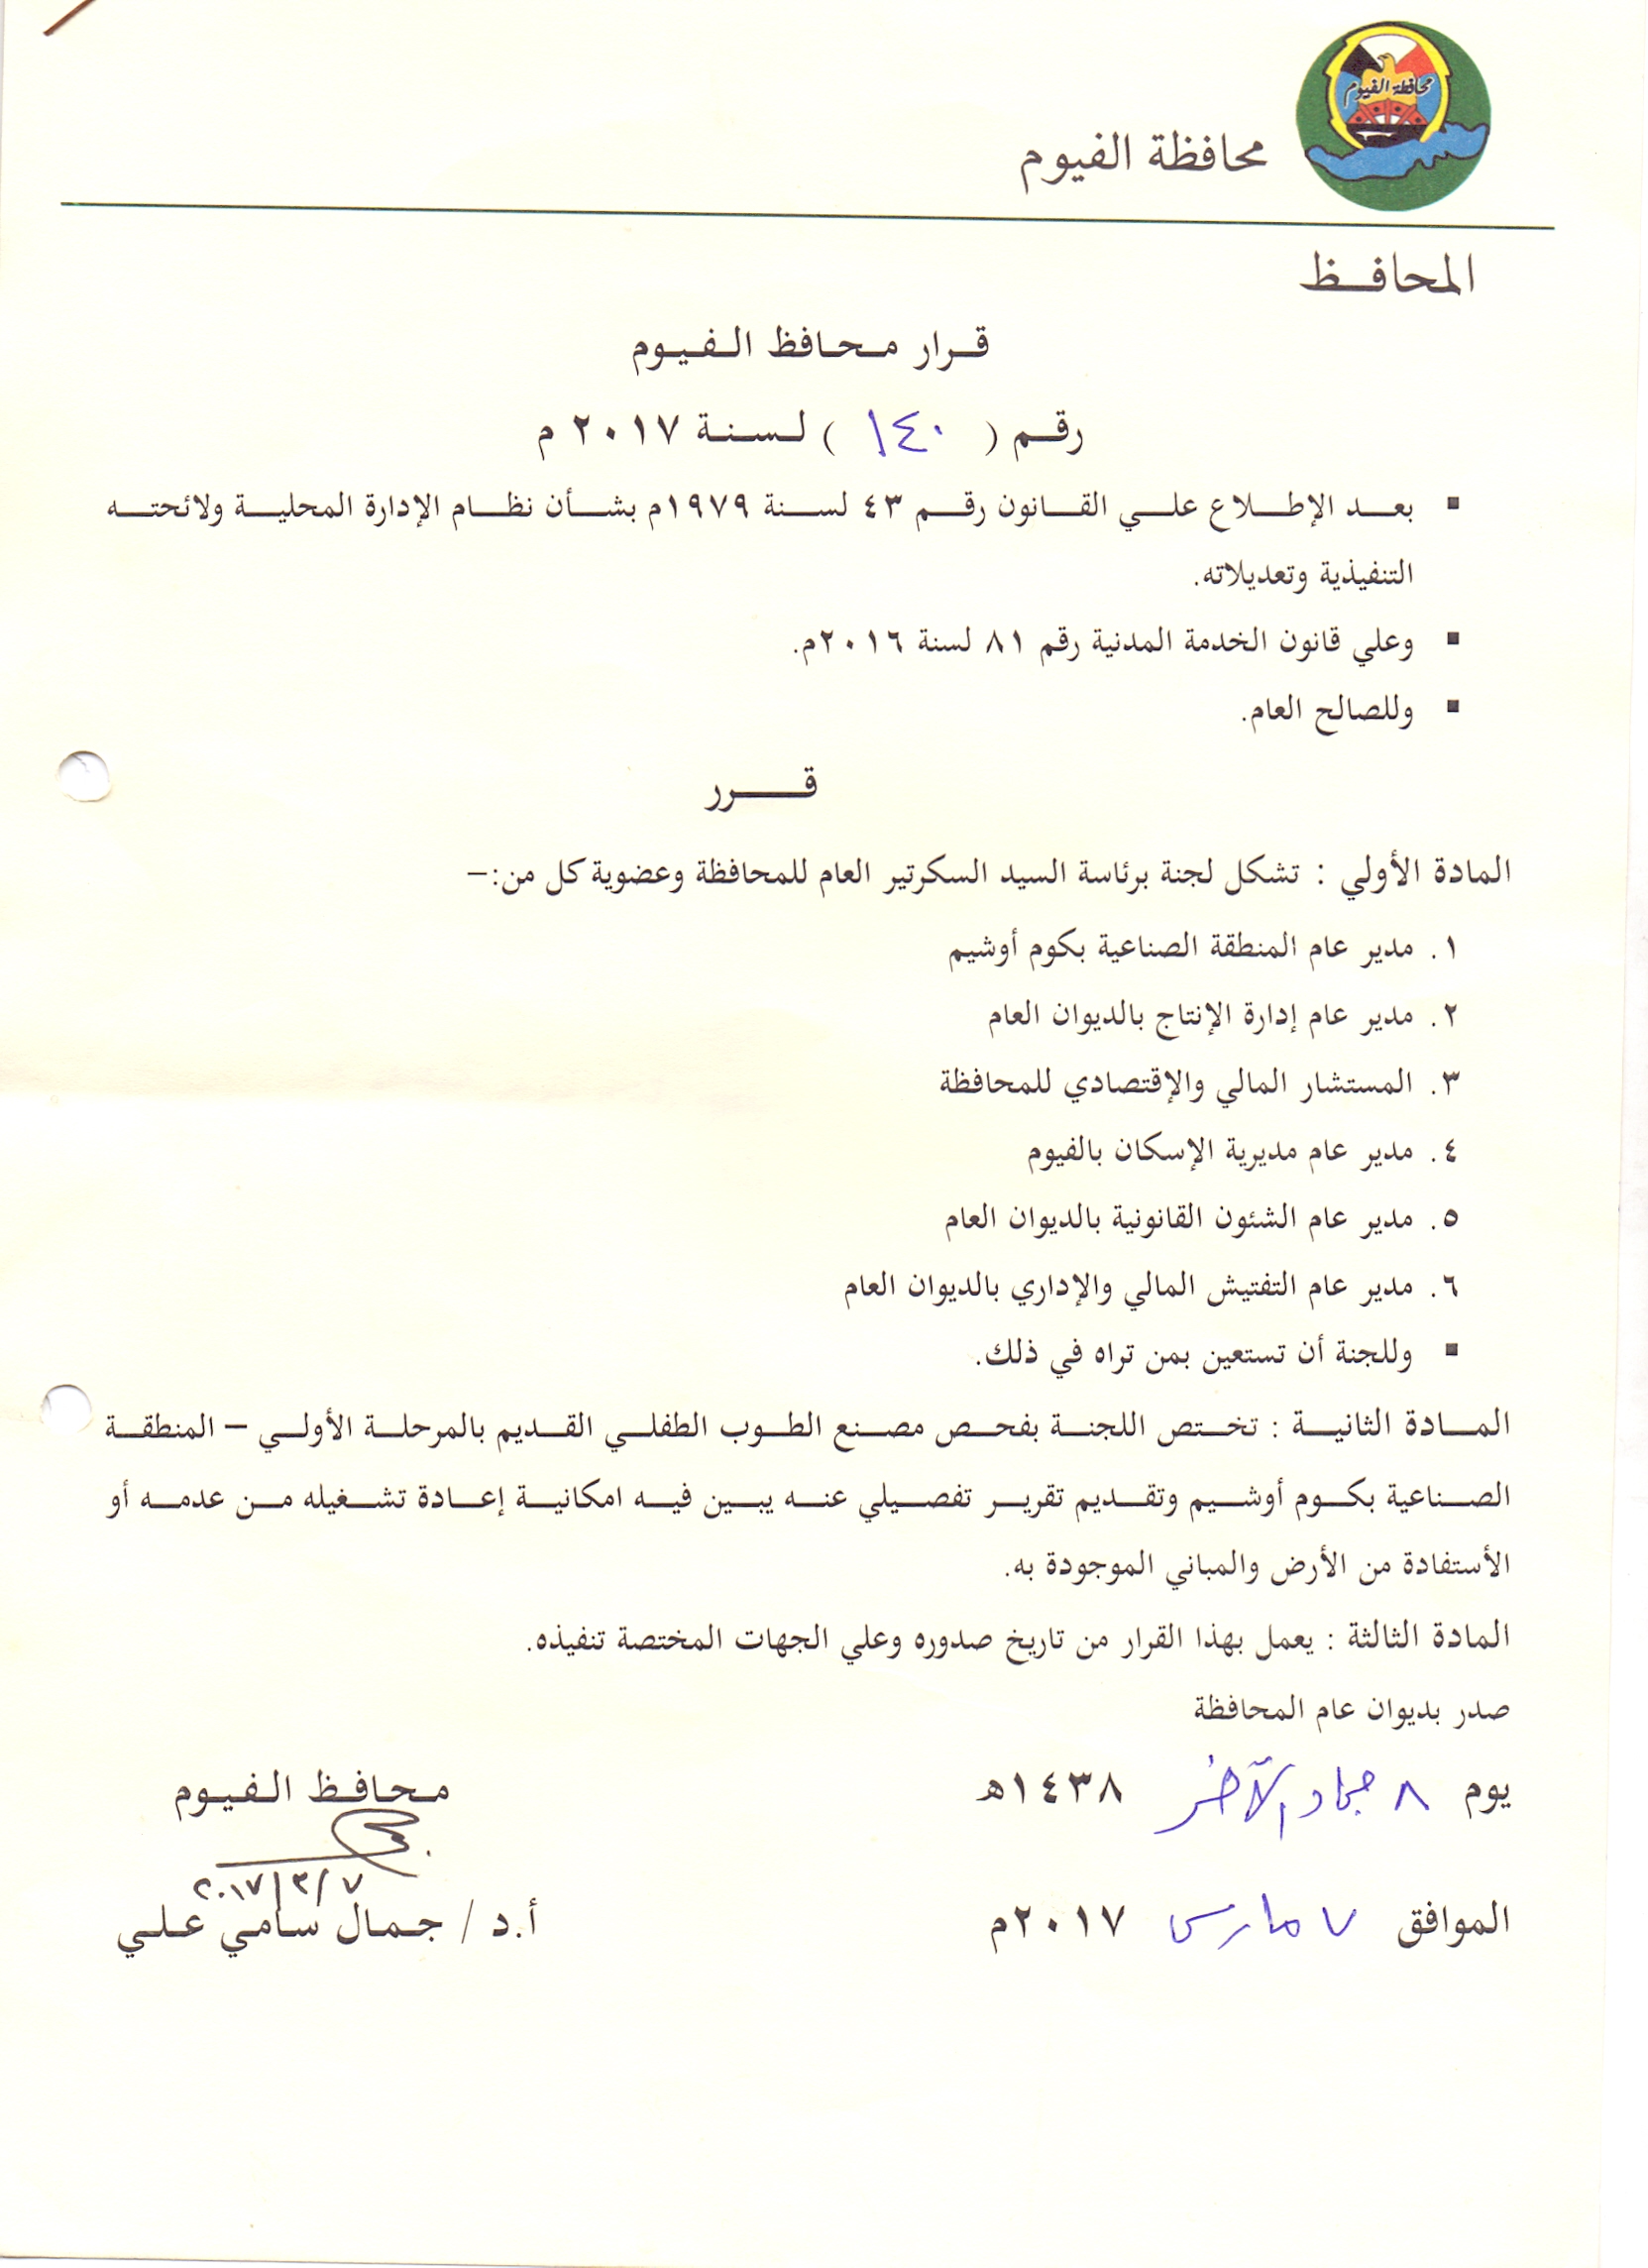 محافظة الفيوم
محافظة الفيوم
المحافظ
قرار محافظ الفيوم
رقم ( ١٤٠ ) لسنة ٢٠١٧ م
▪ بعد الإطلاع علي القانون رقم ٤٣ لسنة ١٩٧٩م بشأن نظام الإدارة المحلية ولائحته
التنفيذية وتعديلاته.
▪ وعلي قانون الخدمة المدنية رقم ٨١ لسنة ٢٠١٦م.
▪ وللصالح العام.
قرر
المادة الأولي : تشكل لجنة برئاسة السيد السكرتير العام للمحافظة وعضوية كل من:–
١. مدير عام المنطقة الصناعية بكوم أوشيم
٢. مدير عام إدارة الإنتاج بالديوان العام
٣. المستشار المالي والإقتصادي للمحافظة
٤. مدير عام مديرية الإسكان بالفيوم
٥. مدير عام الشئون القانونية بالديوان العام
٦. مدير عام التفتيش المالي والإداري بالديوان العام
▪ وللجنة أن تستعين بمن تراه في ذلك.
المادة الثانية : تختص اللجنة بفحص مصنع الطوب الطفلي القديم بالمرحلة الأولي – المنطقة
الصناعية بكوم أوشيم وتقديم تقرير تفصيلي عنه يبين فيه امكانية إعادة تشغيله من عدمه أو
الأستفادة من الأرض والمباني الموجودة به.
المادة الثالثة : يعمل بهذا القرار من تاريخ صدوره وعلي الجهات المختصة تنفيذه.
صدر بديوان عام المحافظة
يوم ٨ جماد الآخر ١٤٣٨هـ
الموافق ٧ مارس ٢٠١٧م
محافظ الفيوم
٢٠١٧/٣/٧
أ.د / جمال سامي علي